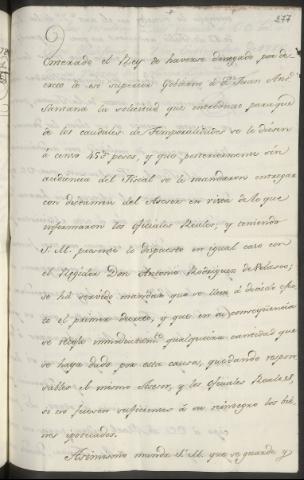 277
Enterado el Rey de haverse denegado por de
creto de ese superior Gobierno â Dn. Juan Antº
Santana la solicitud que introduxo para que
de los caudales de Temporalidades se le diesen
â censo 45d pesos, y que posteriormente sin
audiencia del Fiscal se le mandaron entregar
con dictamen del Asesor en vista de lo que
informaron los Oficiales Reales; y teniendo
S. M. presente lo dispuesto en igual caso con
el Regidor Don Antonio Rodriguez de Velasco;
se hâ servido mandar que se lleve â devido efec
to el primer decreto, y que en su conseqüencia
se reciba inmediatamte. qualquiera cantidad que
se haya dado por esta causa, quedando respon
sables el mismo Asesor, y los Oficiales Reales,
si no fuesen suficientes â su reintegro los bie
nes hipotecados.
Asimismo manda S. M. que se guarde y